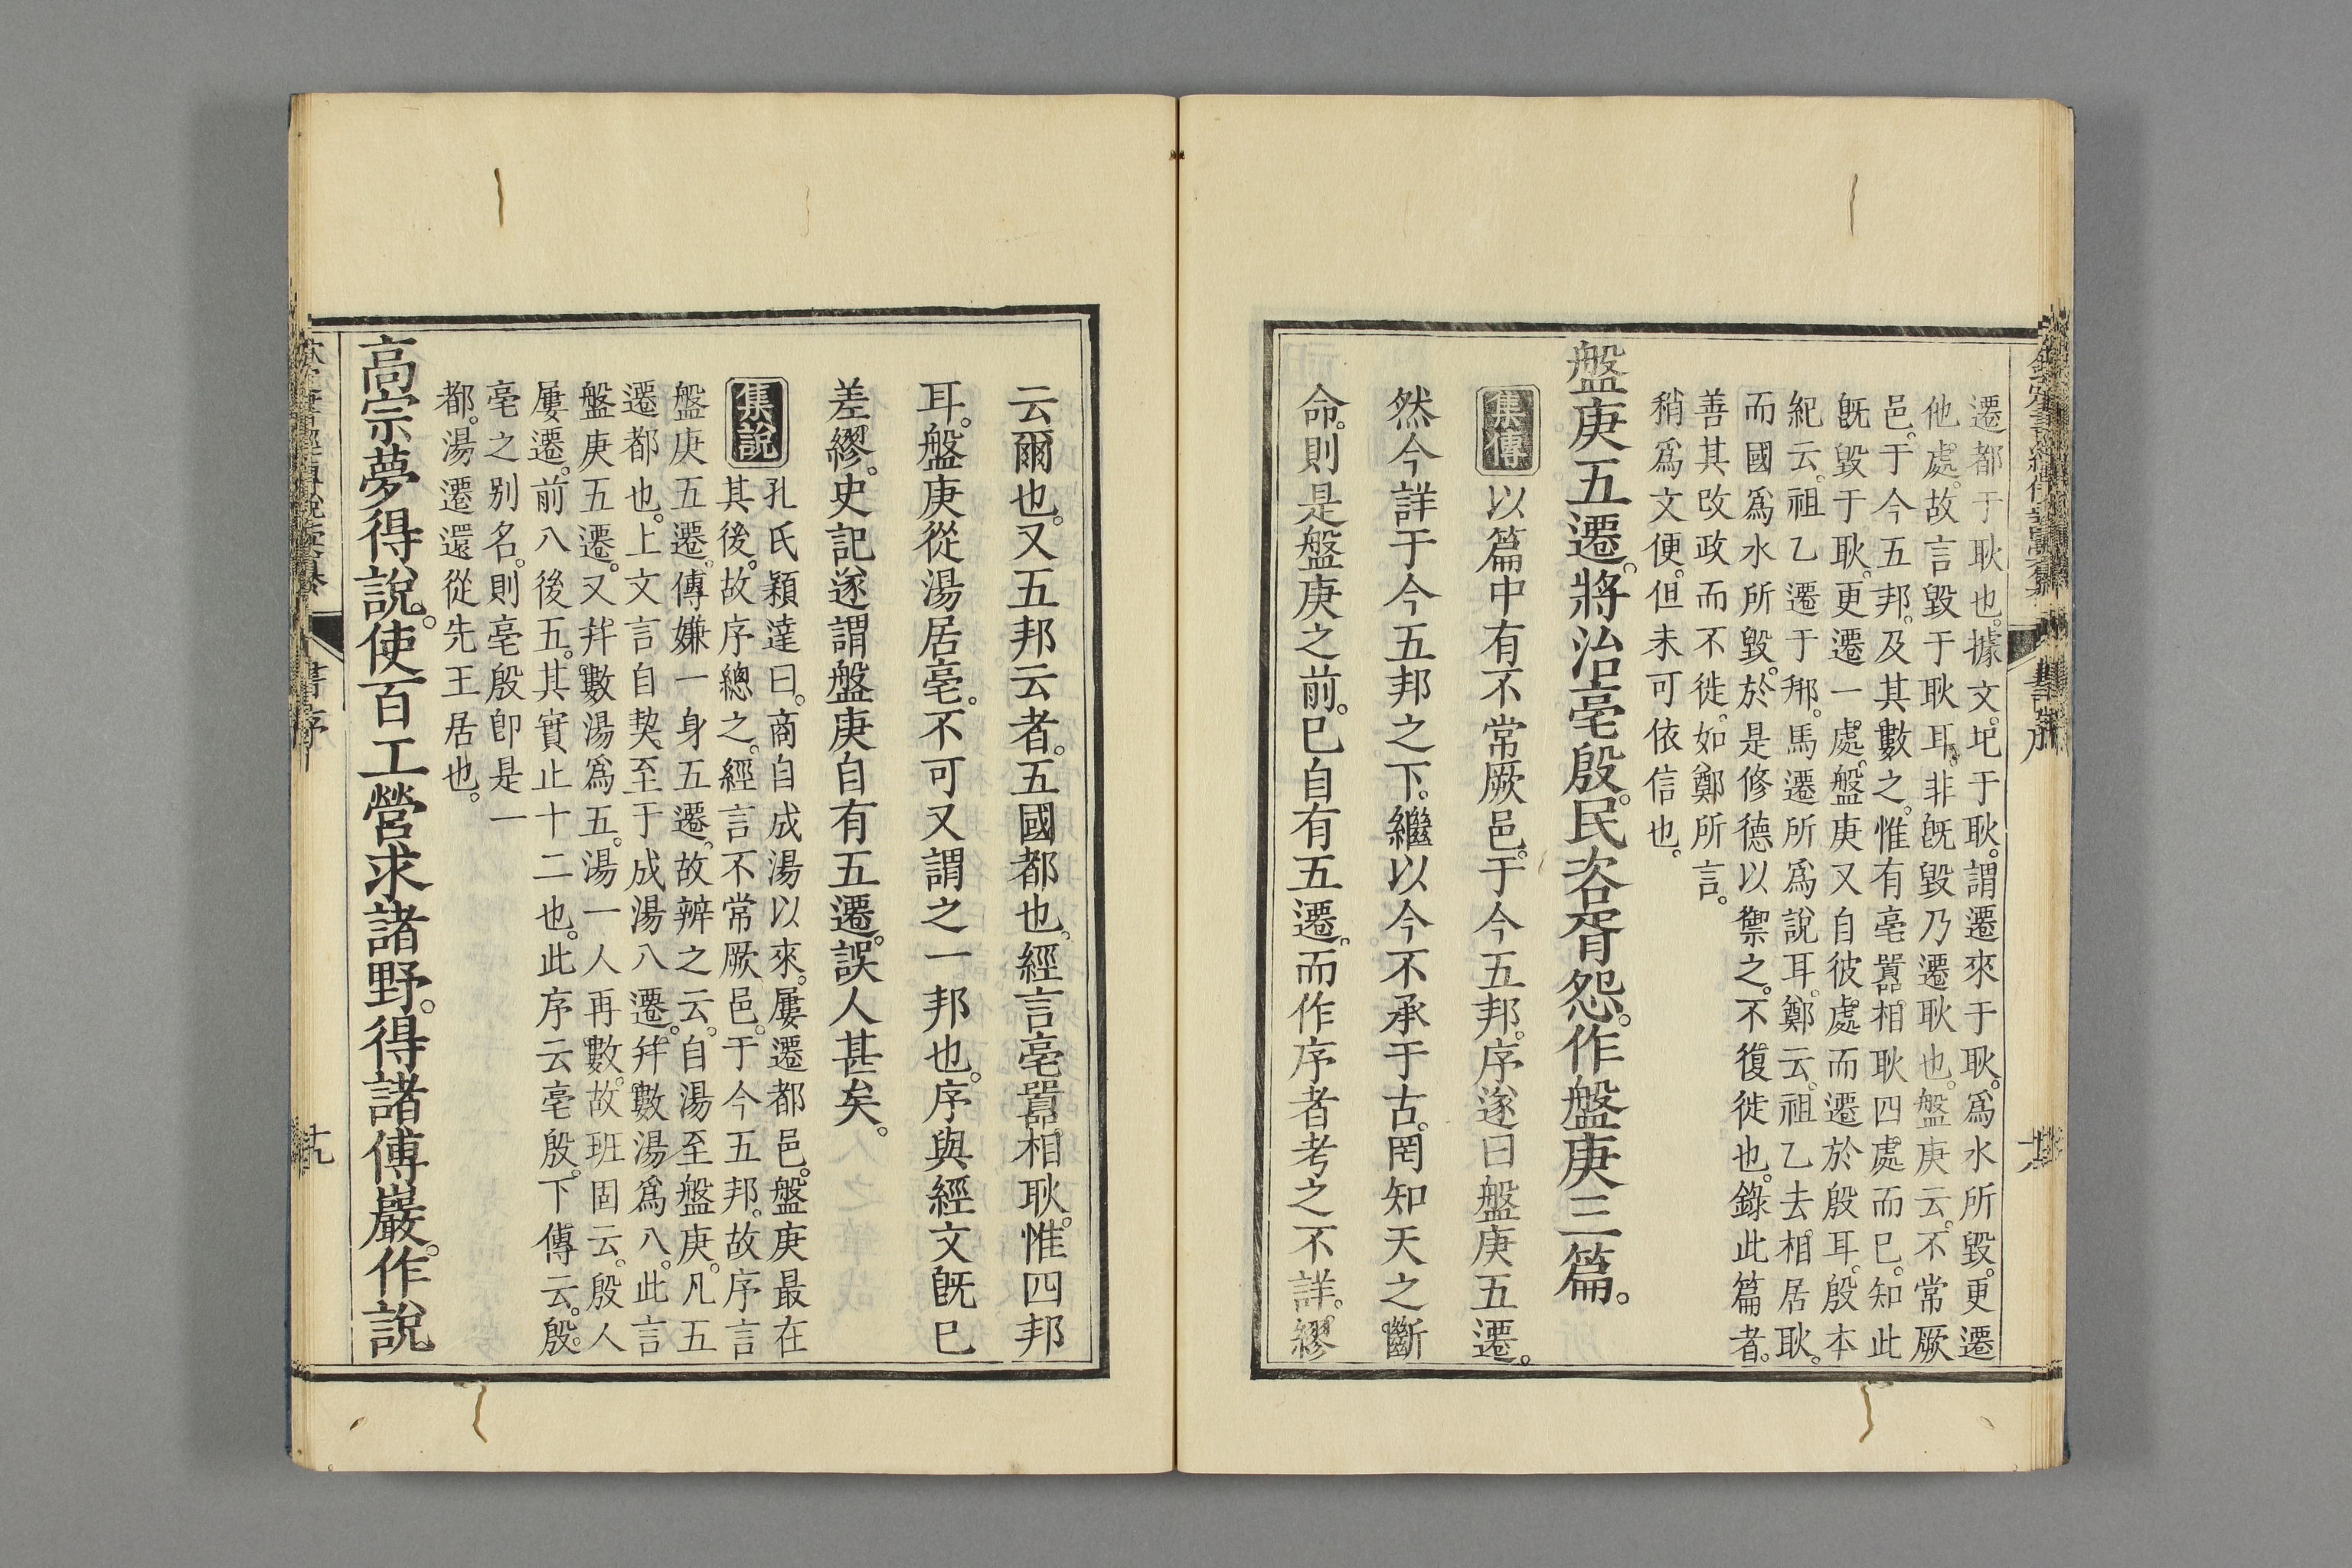 遷都于耿也。據文。圯于耿。謂遷來于耿。爲水所毀。更遷
他處。故言毀于耿耳。非旣毀乃遷耿也。盤庚云。不常厥
邑。于今五邦。及其數之。惟有亳囂相耿四處而已。知此
旣毀于耿。更遷一處。盤庚又自彼處而遷於殷耳。殷本
紀云。祖乙遷于邢。馬遷所爲說耳。鄭云。祖乙去相居耿。
而國爲水所毀。於是修德以禦之。不復徙也。錄此篇者。
善其改政而不徙。如鄭所言。
稍爲文便。但未可依信也。
盤庚五遷。將治亳殷。民咨胥怨。作盤庚三篇。
集傳
以篇中有不常厥邑。于今五邦。序遂曰盤庚五遷。
然今詳于今五邦之下。繼以今不承于古。罔知天之斷
命。則是盤庚之前。已自有五遷。而作序者考之不詳。繆
云爾也。又五邦云者。五國都也。經言亳囂相耿。惟四邦
耳。盤庚從湯居亳。不可又謂之一邦也。序與經文旣已
差繆。史記遂謂盤庚自有五遷。誤人甚矣。
集說
孔氏穎達曰。商自成湯以來。屢遷都邑。盤庚最在
其後。故序總之。經言不常厥邑。于今五邦。故序言
盤庚五遷。傳嫌一身五遷。故辨之云。自湯至盤庚。凡五
遷都也。上文言自契至于成湯八遷。幷數湯爲八。此言
盤庚五遷。又幷數湯爲五。湯一人再數。故班固云。殷人
屢遷。前八後五。其實止十二也。此序云亳殷。下傳云。殷。
亳之別名。則亳殷卽是一
都。湯遷還從先王居也。
高宗夢得說。使百工營求諸野。得諸傅巖。作說
書序